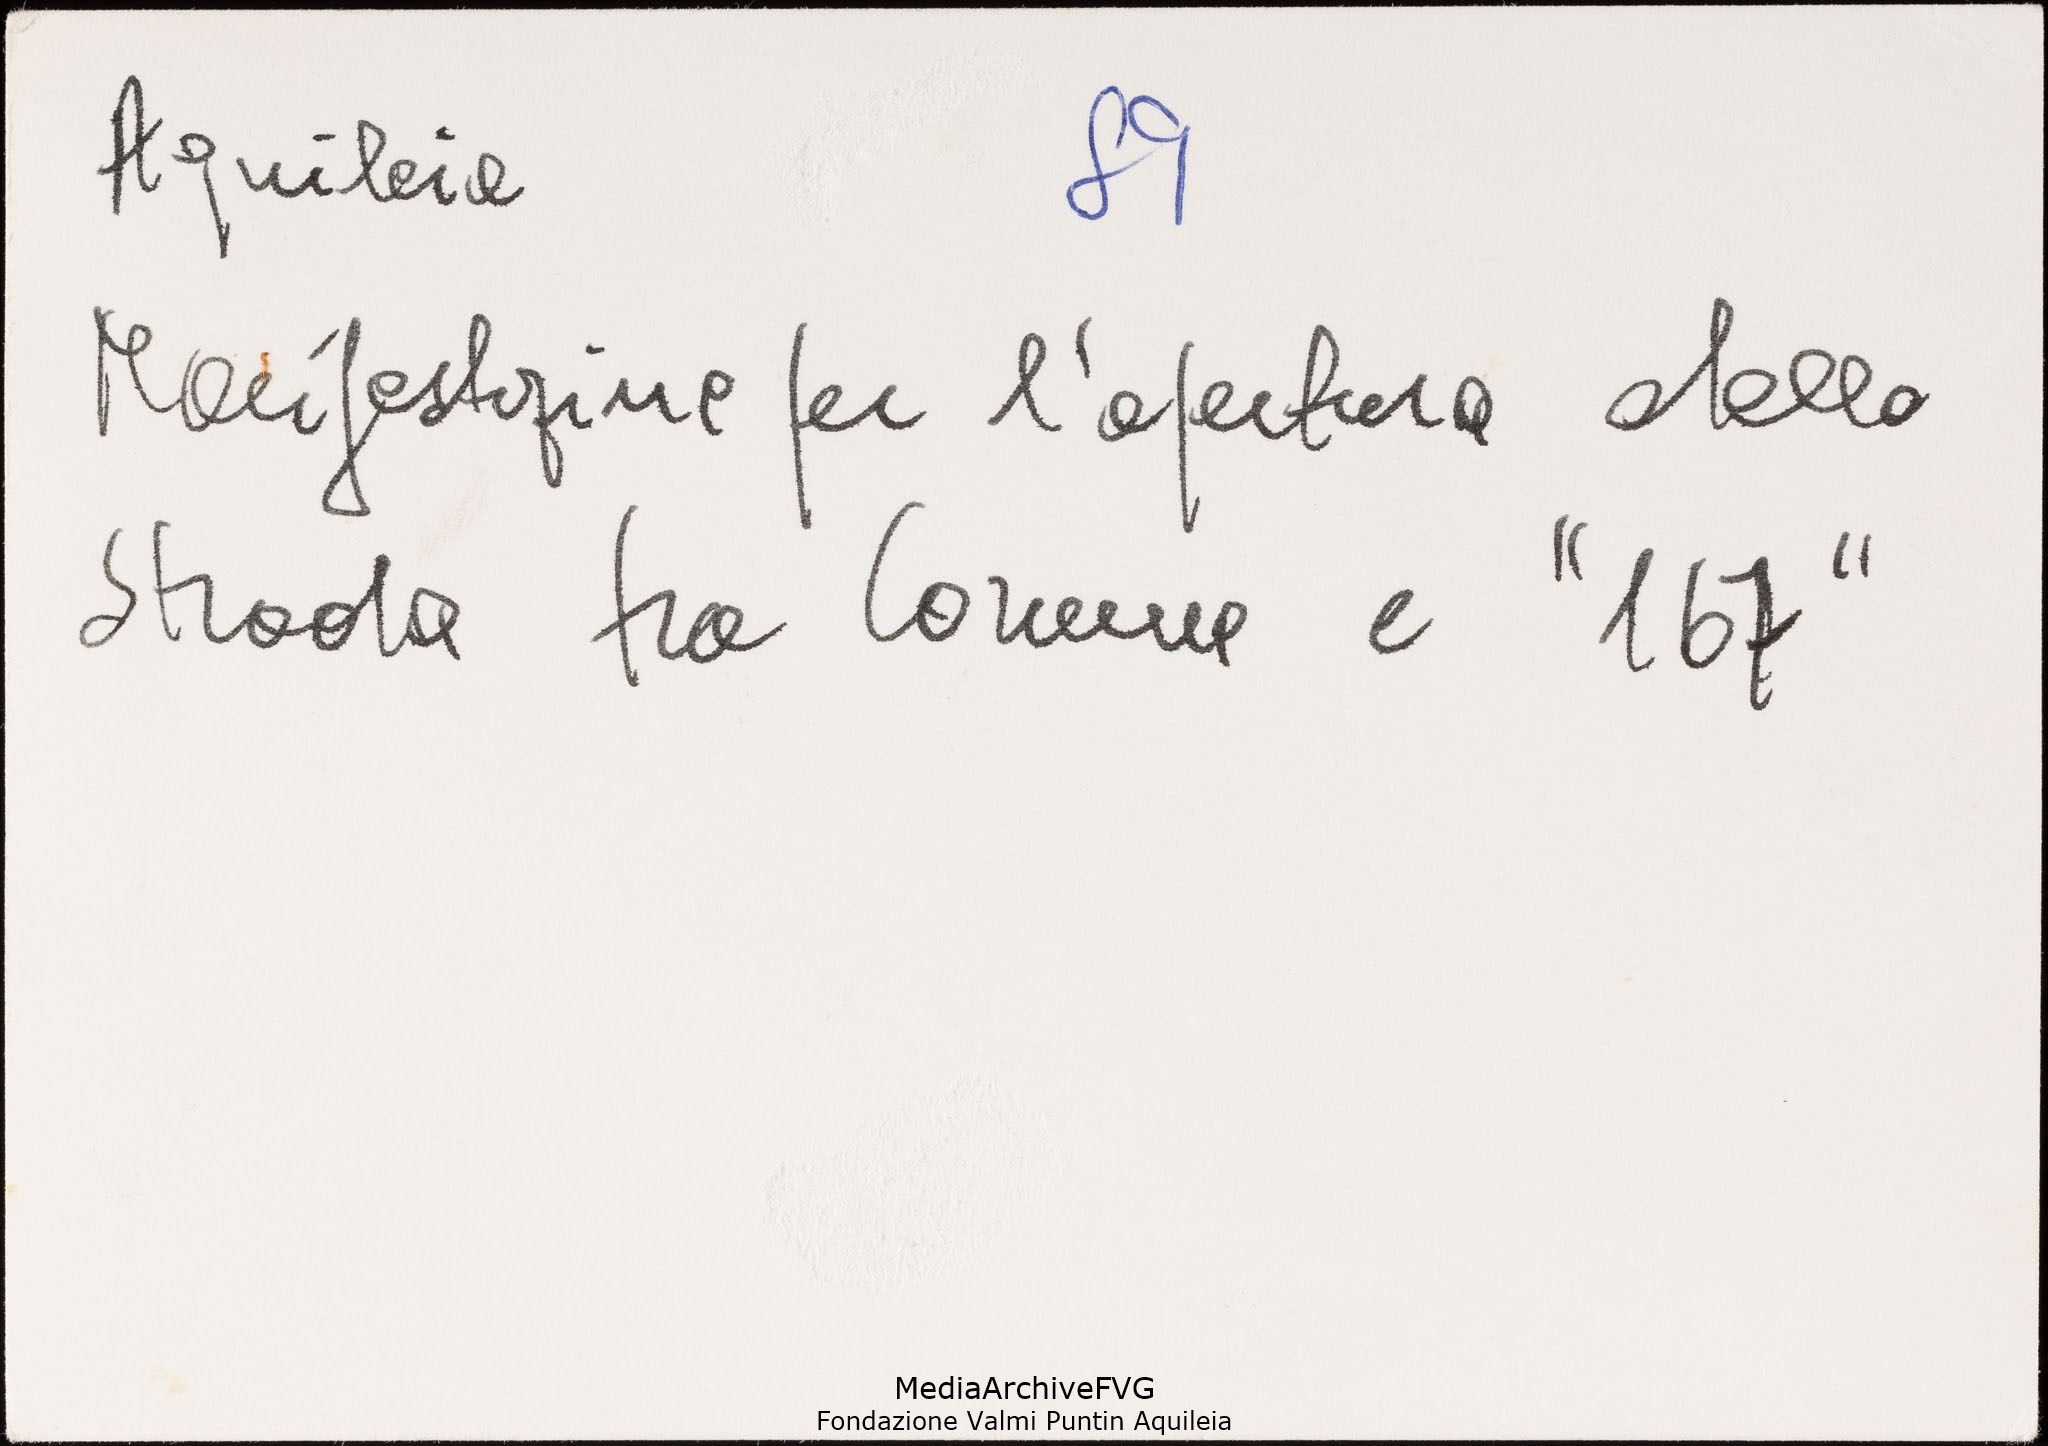 Aquileia 89
Manifestazione per l'apertura della
Strada tra Comune e "167"
MediaArchiveFVG
Fondazione Valmi Puntin Aquileia